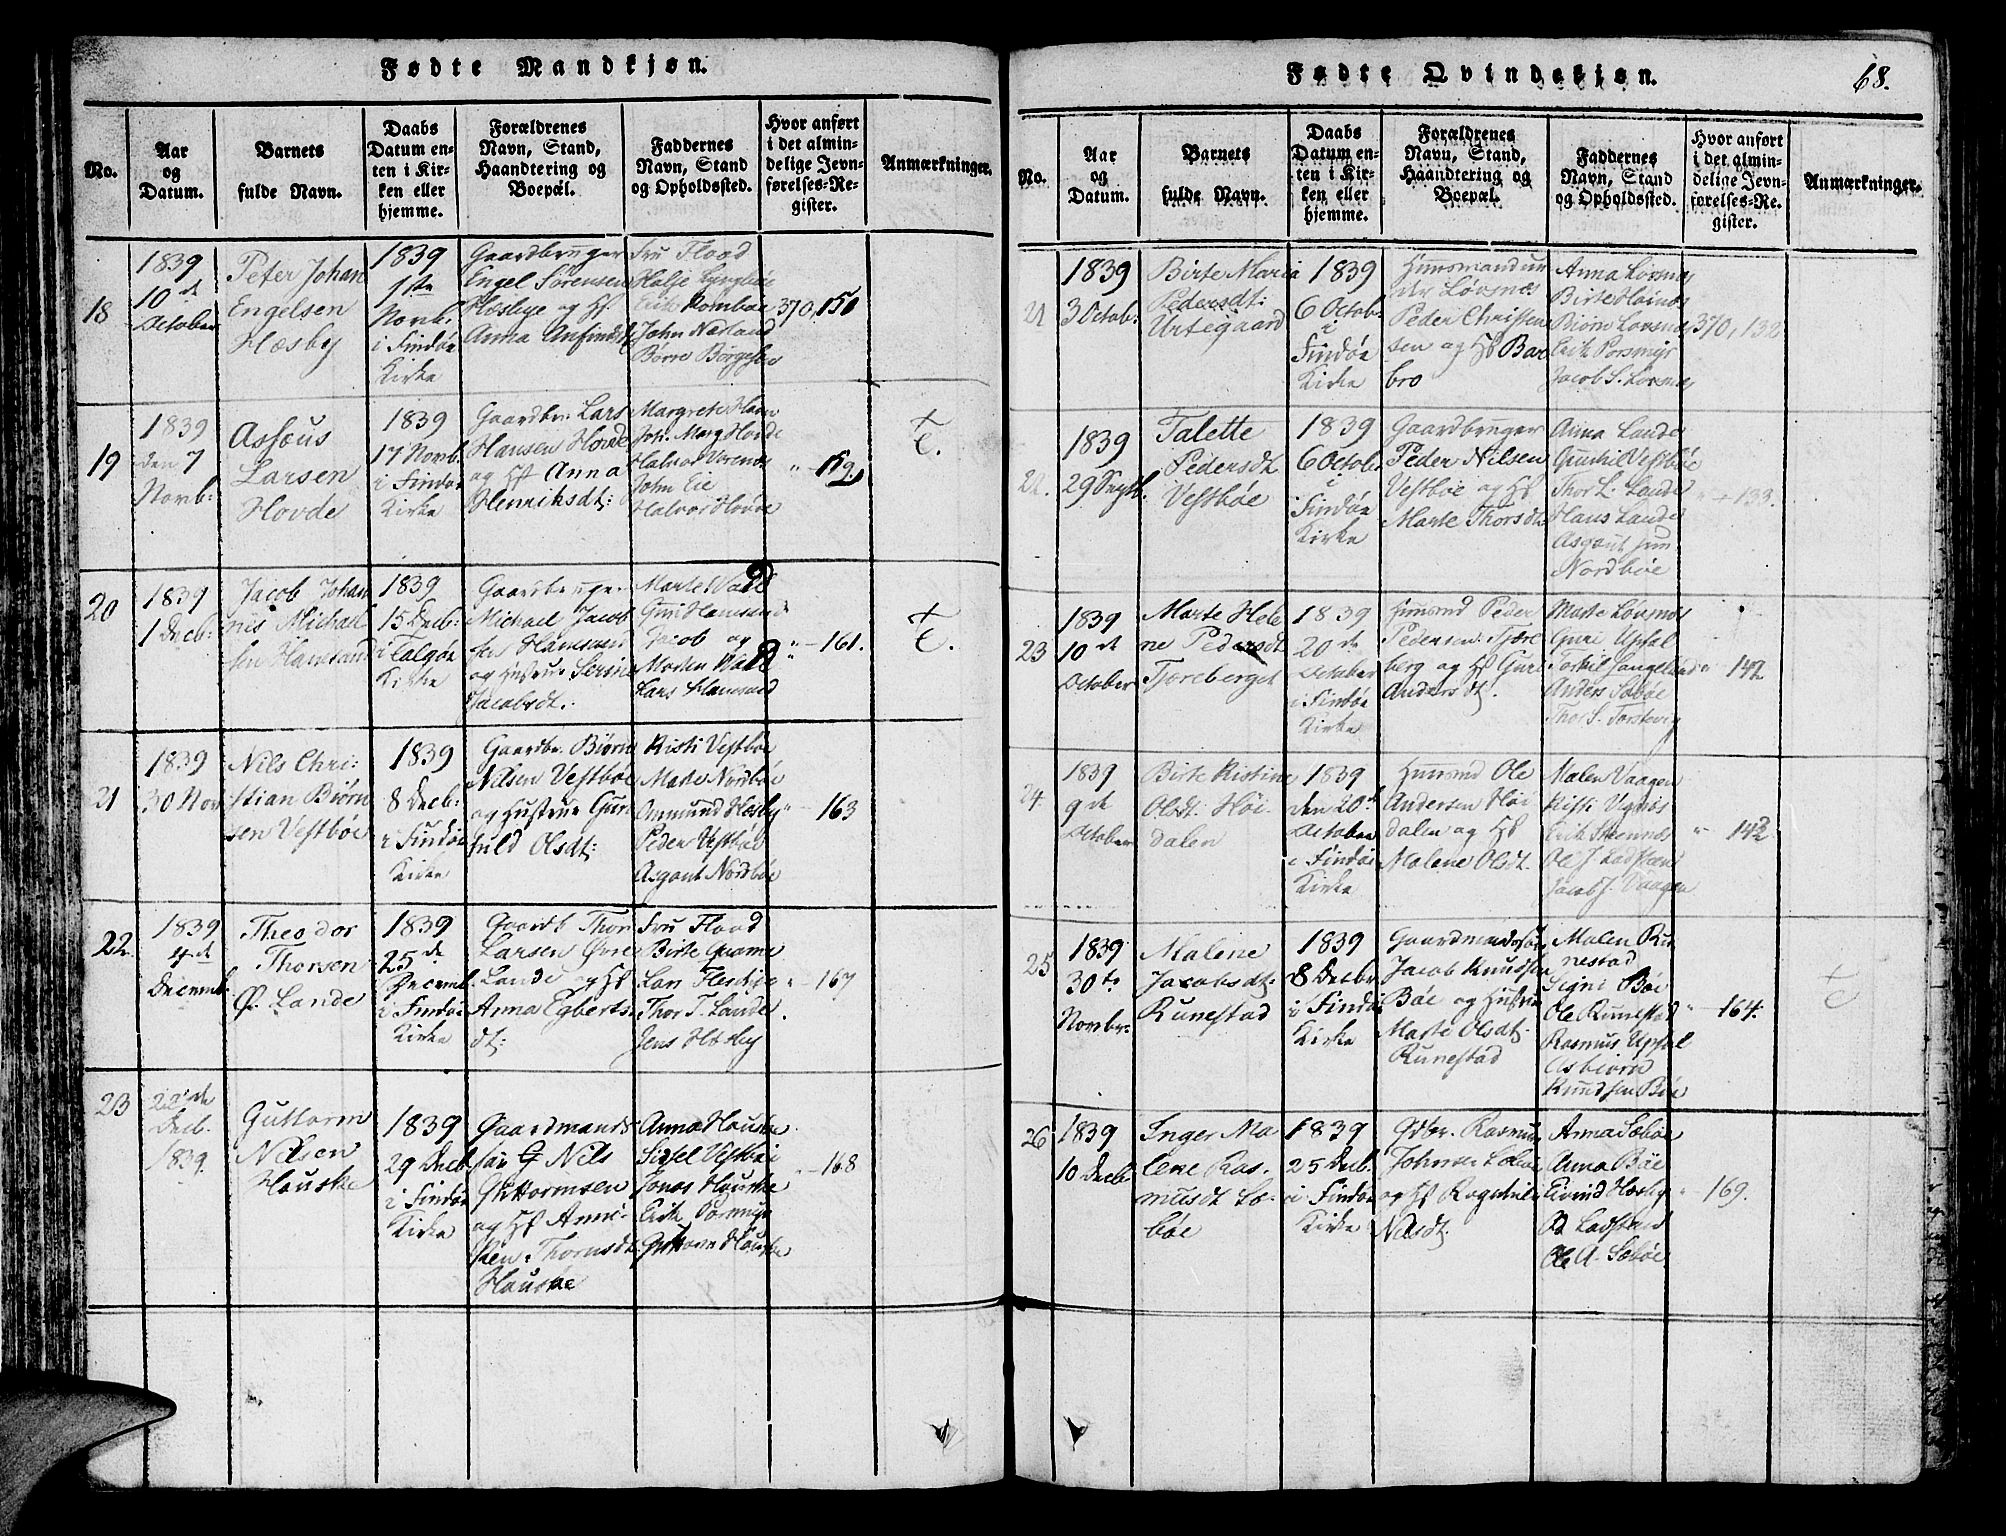 Fødte Mandkjøn.
No.
Aar
og
Datum.
Barnets
fulde Navn.
Daabs
Datum en-
ten i Kir-
ken eller
hjemme.
Forældrenes
Navn, Stand,
Haandtering og
Boepæl.
Faddernes
Navn, Stand
og Opholdssted.
Hvor anført
i det almin-
delige Jevn-
førelses-Re-
gister.
Anmærkninger.
18
1839
10de
October
Peter Johan
Engelsen
Hæsby
1839
1ste
Novb.
i Findøe
Kirke
Gaardbruger
Engel Sørensen
Hæsbye og Hf.
Anna Anfindsdt
Fru Flood
John Næsland
370, 150
19
1839
den 7
Novb:
Assous
Larsen
Hovde
1839
17 Novb.
i Findøe
Kirke
Gaardbr. Lars
Hansen Hovde
og Hst Anna
Henriksdt:
Margrete
Joh. Marg Hovde
Halvor
John Eie
Halvor Hovde
" 159
+
C.
20
1839
1 Decb:
Jacob Johan
nes Michael
sen Hamsand
1839
15 Decb:
i Talgøe
Kirke
Gaardbruger
Michael Jacob
sen Hamsand
og Hustrue Serine
Jacobsdt.
Marte
Guri Hamsand
Jacob og
Morten
Lars Hamsand
" 161.
+
C.
21
1839
30 Nov
Nils Chri:
stian Biørn
sen Vestbøe
1839
8 Decb:
i Findøe
Kirke
Gaardbr. Biørn
Nilsen Vestbøe
og Hustrue Gun
hild Olsdt:
Kisti Vestbøe
Marte Nordbøe
Ommund Hæsby
Peder Vestbøe
Asgaut Nordbøe
" 163
22
1839
4de
Decemb.
Theodor
Thorsen
Ø. Lande
1839
25de
Decemb.
i Findøe
Kirke
Gaardb Thor
Larsen Øvre
Lande og Hf
Anna Egberts-
dt:
Fru Flood
Birte Qvame
Thor T. Lande
" 167
23
22de
Decb.
1839.
Guttorm
Nilsen
Houske
1839
29 Decb
i Findøe
Kirke
Gaardmands
søn G Nils
Guttormsen
og Hf Anne-
ken Thormsdt.
Houske
Anna Houske
Sissel Vestbøe
Jonas Houske
Erik
Guttorm Houske
" 168
Fødte Qvindekjøn.
68.
No.
Aar
og
Datum.
Barnets
fulde Navn.
Daabs
Datum en-
ten i Kir-
ken eller
hjemme.
Forældrenes
Navn, Stand,
Haandtering og
Boepæl.
Faddernes
Navn, Stand
og Opholdssted.
Hvor anført
i det almin-
delige Jevn-
førelses-Re-
gister.
Anmærkninger.
21
1839
3 Octob:
Birte Maria
Pedersdt:
Urtegaard
1839
6 Octob:
i
Findøe
Kirke
Huusmand un
der Løvsnæs
Peder Christen
sen og Hf Bar
bro
Anna Løvsnæs
Birte Høinæs
Biørn Løvsnæs
Erik Porsmyr
Jacob S. Løvsnæs
370, 132
22.
1839
29 Septb.
Talette
Pedersdt
Vestbøe
1839
6 Octob.
i
Findøe
Kirke
Gaardbruger
Peder Nilsen
Vestbøe og Hf
Marte Thorsdt.
Anna Lande
Gunhil Vestbøe
Thor L. Lande
Hans Lande
Asgaut
Nordbøe
" 133.
23
1839
10de
October
Marte Hele
ne Pedersdt
Tjøreberget
1839
20de
October
i Findøe
Kirke
Huusmd Peder
Pedersen Tjøre
berg og Hf Guri
Andersdt.
Marte Løvsnæs
Guri Upsal
Anders Sæbøe
Thor S. Torstevig
" 142
24.
1839
9de
October
Birte Kistine
Olsdt. Høi-
dalen
1839
den 20de
October
i Findøe
Kirke
Huusmd Ole
Andersen Høi
dalen og Hf
Malene Olsdt.
Malen Vaagen
Kisti Vignæs
Erik Steennæs
Ole J. Ladstein
Jacob J. Vaagen
" 142
25
1839
30te
Novbr.
Malene
Jacobsdt:
Runestad
1839
8 Decbr
i Findøe
Kirke
Gaardmandssøn
Jacob Knudsen
Bøe og Hustru
Marte Olsdt:
Runestad
Malen Ru
nestad
Signi Bøe
Ole Runestad
Rasmus Upsal
Asbiørn
Knudsen Bøe
" 164.
+
C
26
1839
10 Decb
Inger Ma
lene Ras-
musdt Sæ-
bøe
1839
25 Decb.
i Findøe
Kirke
Gdbr. Rasmus
Johnsen Sæbøe
og Hf Ragnhil
Nilsdt.
Anna Sæbøe
Anna Bøe
Eivind Hæsby
Ladstein
Ole A. Sæbøe
" 169.